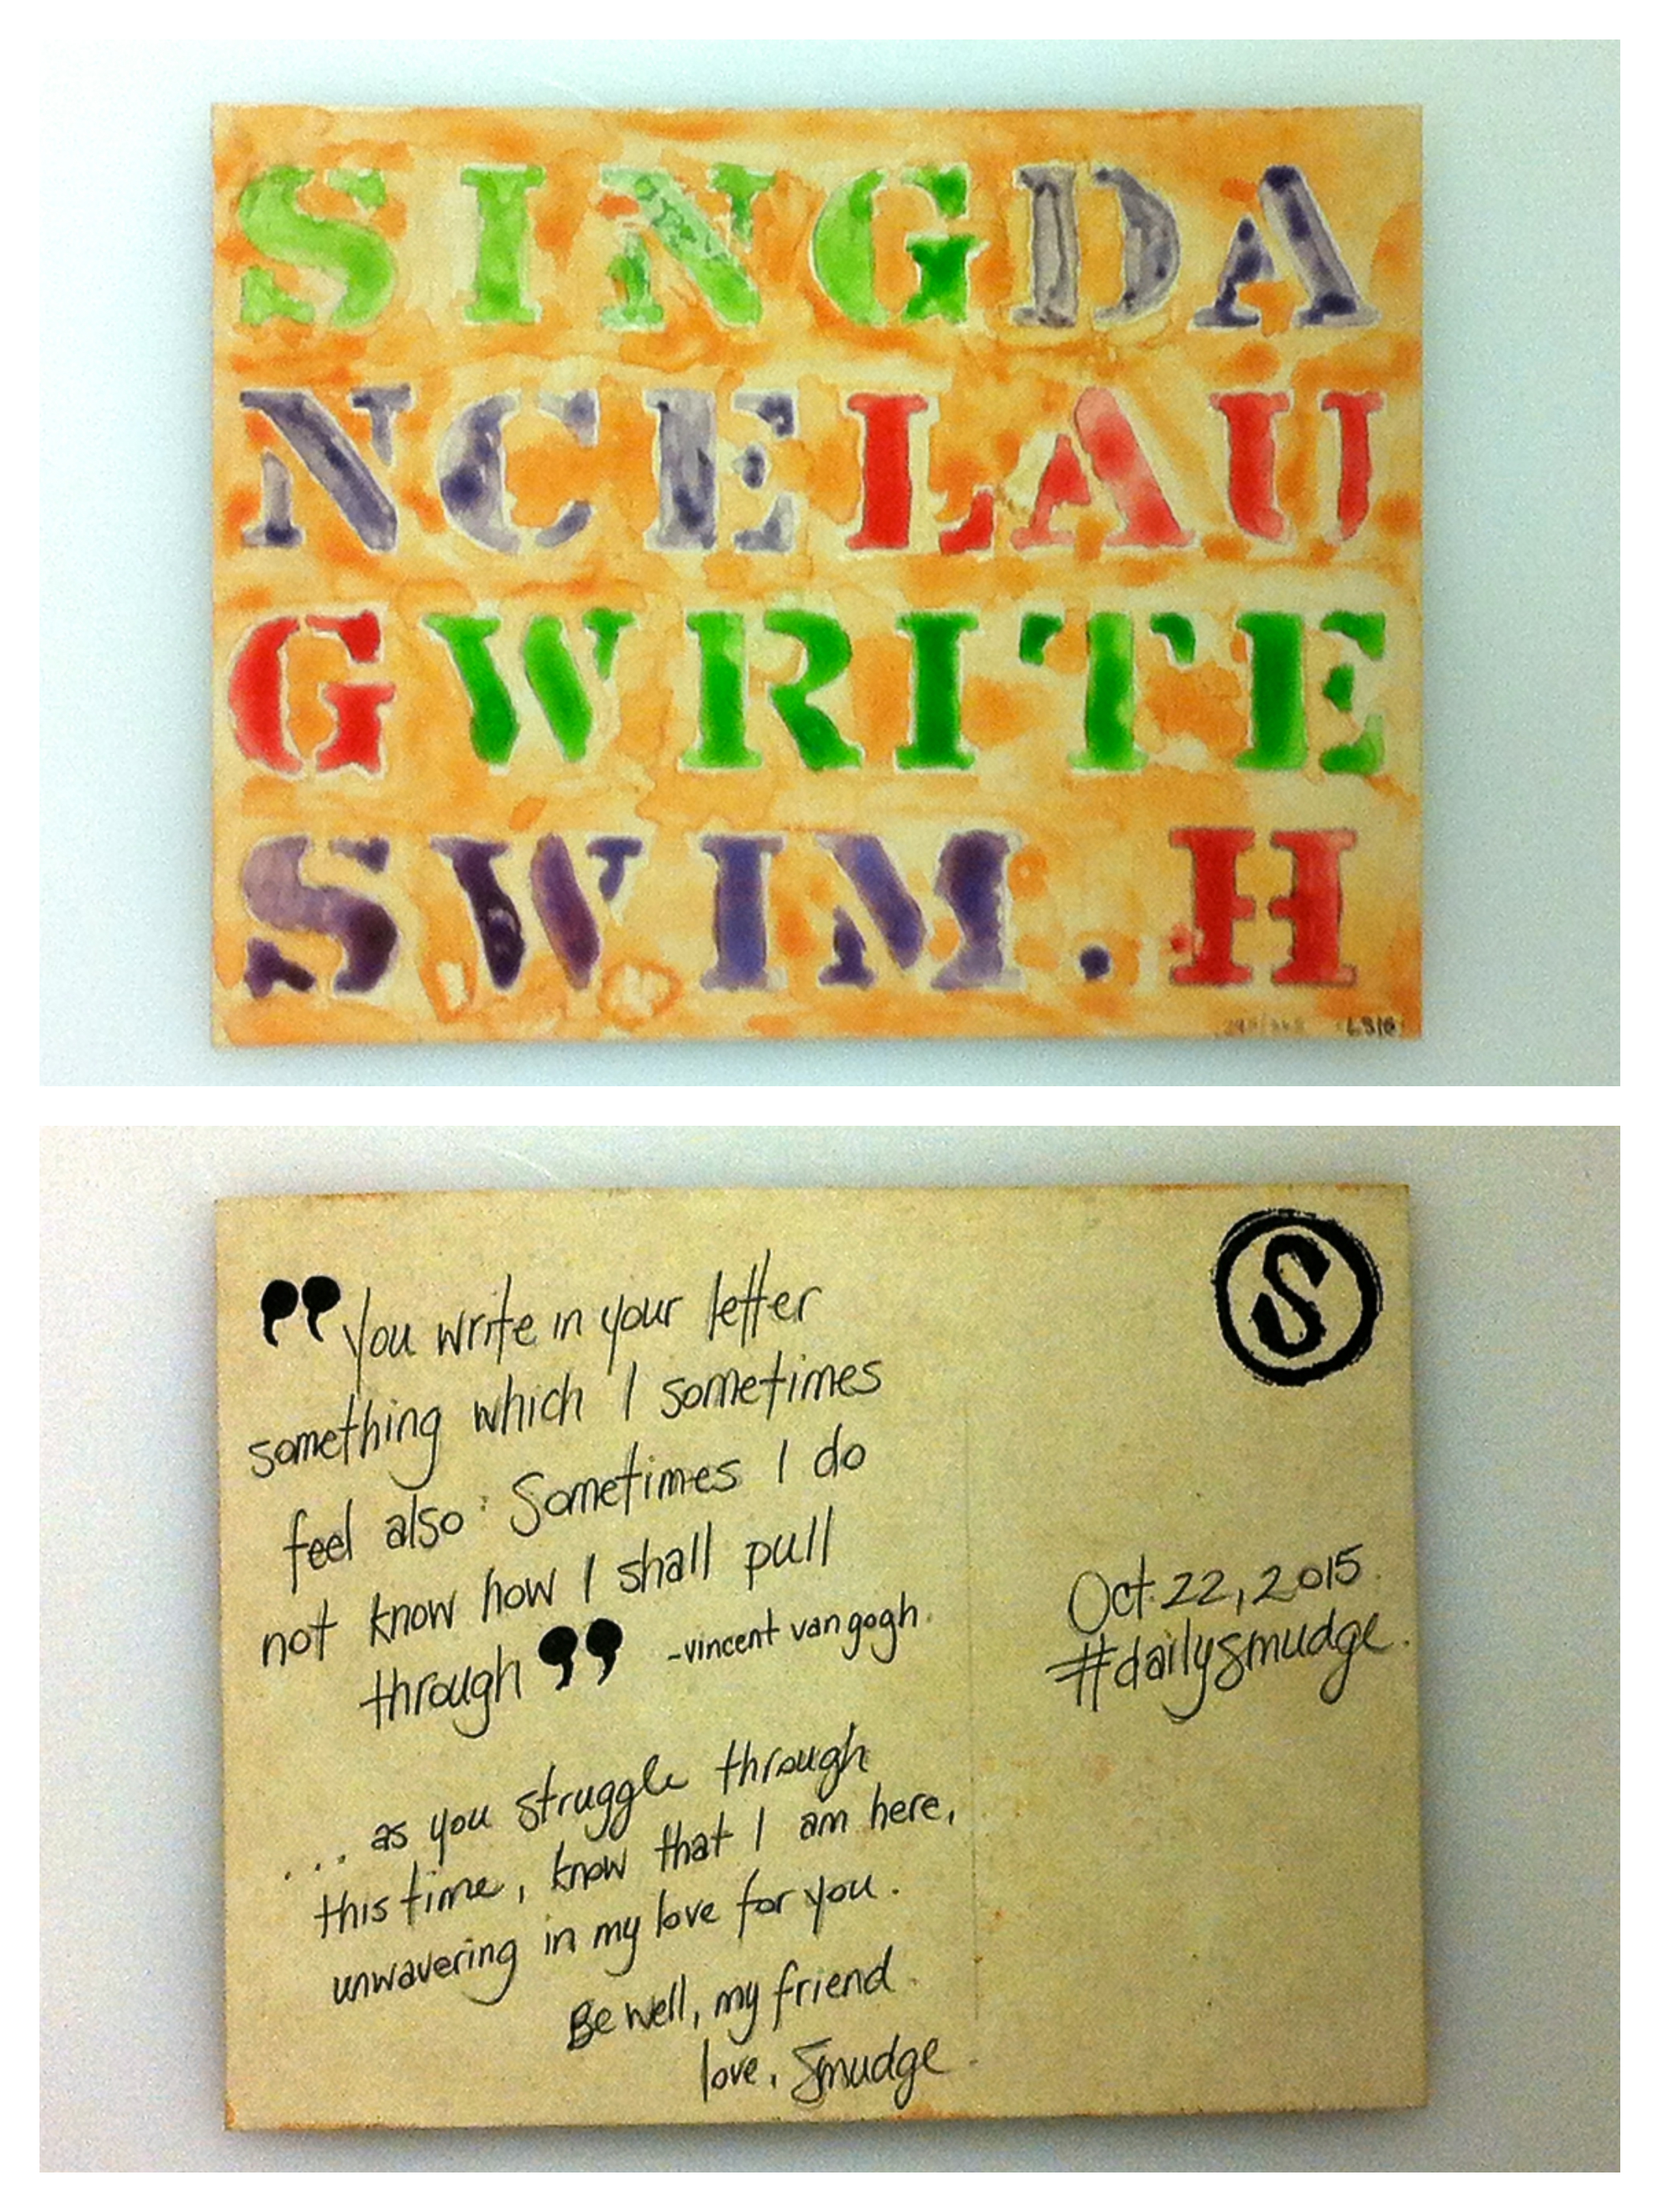 SINGDA
NCELAU
GWRITE
SWIM.H
S
"You write in your letter
something which I sometimes
feel also. Sometimes I do
not know how I shall pull
through" -vincent van gogh.
... as you struggle through
this time, know that I am here,
unwavering in my love for you.
Be well, my friend.
love, Smudge.
Oct. 22, 2015.
#dailysmudge.